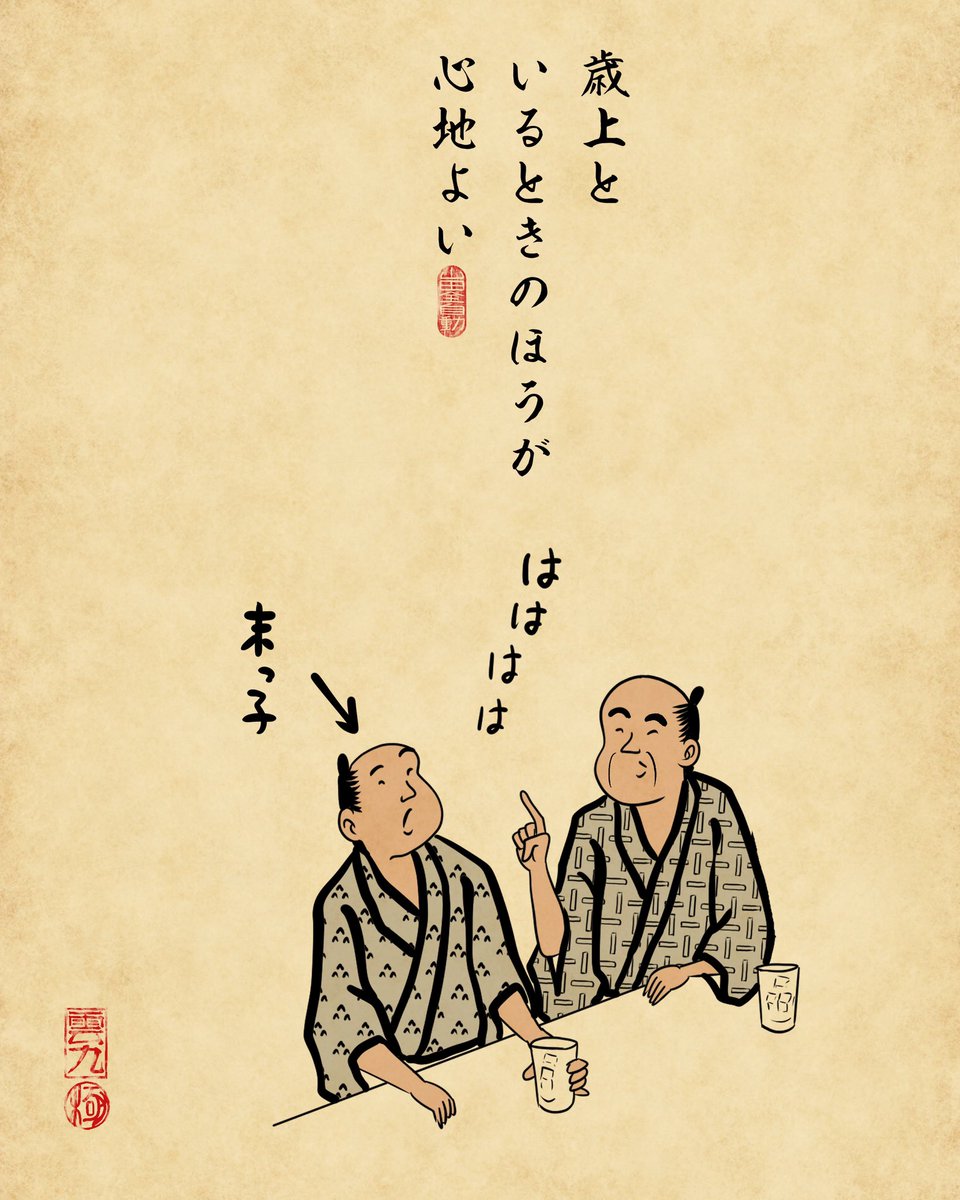 歳上と
いるときのほうが
心地よい
はははは
末っ子